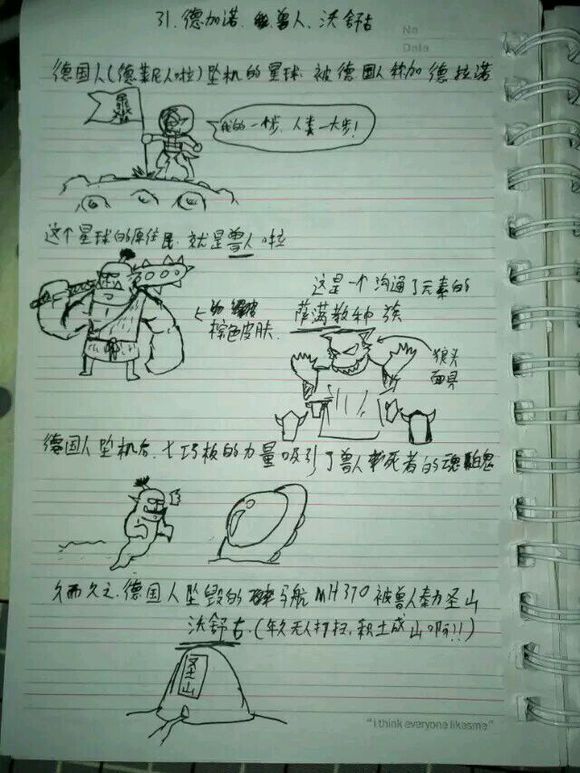 31. 德加诺、兽人、沃舒古
No
Date
德国人(德莱尼人啦)坠机的星球. 被德国人称加德拉诺
我的一小步, 人类一大步!
这个星球的原住民. 就是兽人啦
棕色皮肤.
这是一个沟通了元素的
萨满教种族
狼头
面具
德国人坠机后. 七巧板的力量吸引了兽人死者的魂
久而久之. 德国人坠毁的马航MH370被兽人奉为圣山
沃舒古. (年久无人打扫, 积土成山啊!!)
圣山
"I think everyone likesme"